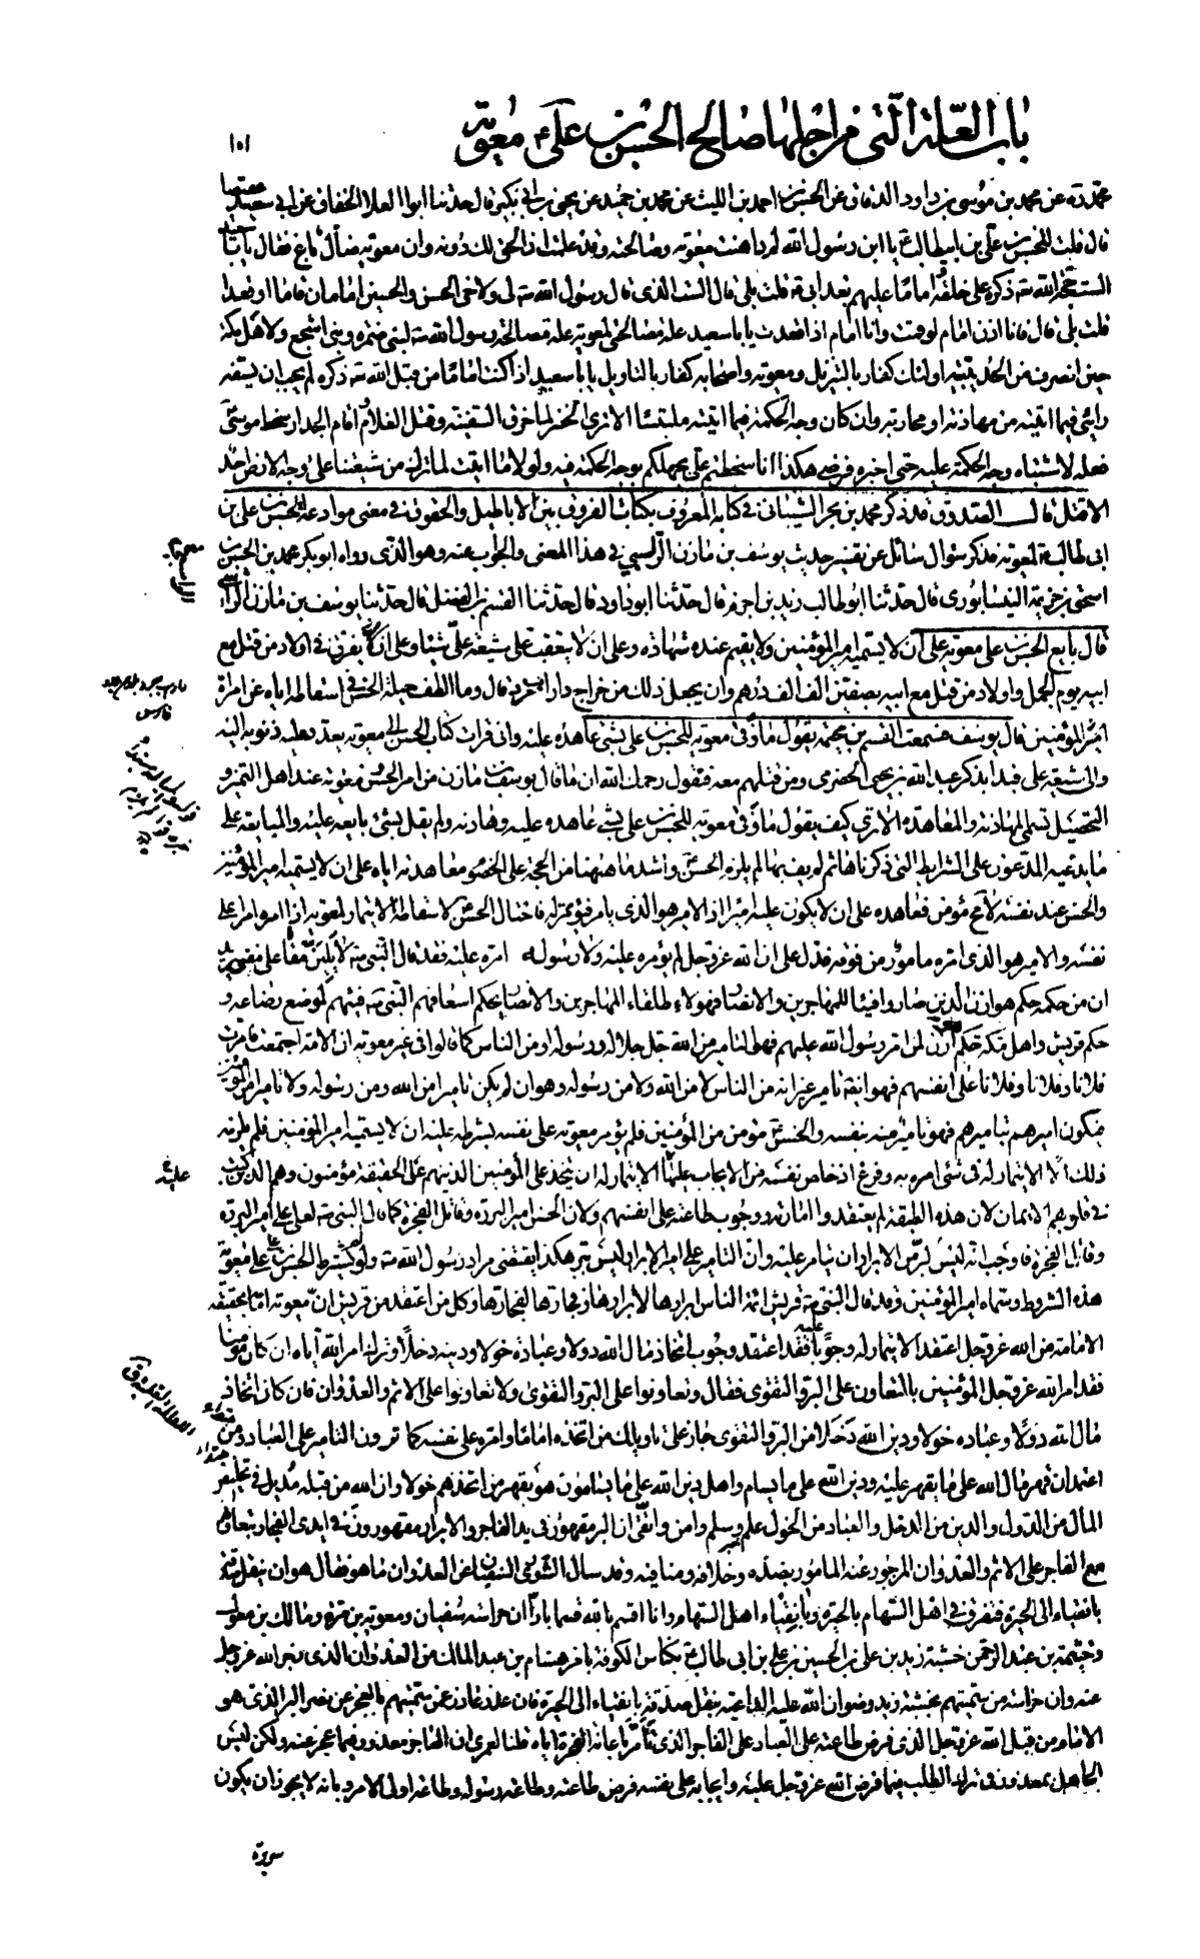 باب العلة التي من اجلها صالح الحسن بن علي ع معوية
١٠١
محمد ره عن محمد بن موسى بن داود الدقاق عن الحسن بن احمد بن الليث عن محمد بن حميد عن يحيى بن ابي بكير قال حدثنا ابوا العلا الخفاف عن ابي سعيد عقيصا
قال قلت للحسن بن علي بن ابيطالب ع يا ابن رسول الله لم داهنت معوية وصالحته وقد علمت ان الحق لك دونه وان معوية ضال باغ فقال يا با سعيد
الست حجة الله تع ذكره على خلقه واماما عليهم بعد ابي ع قلت بلى قال الست الذي قال رسول الله ص لي ولاخي الحسن والحسين امامان قاما او قعدا
قلت بلى قال فانا اذن امام لو قمت وانا امام اذا قعدت يا با سعيد علة مصالحتي لمعوية علة مصالحة رسول الله ص لبني ضمره وبني اشجع ولاهل مكة
حين انصرف من الحديبية اولئك كفار بالتنزيل ومعوية واصحابه كفار بالتاويل يا با سعيد اذا كنت اماما من قبل الله تع ذكره لم يجب ان يسفه
رايي فيما اتيته من مهادنة او محاربة وان كان وجه الحكمة فيما اتيته ملتبسا الا ترى الخضر لما خرق السفينة وقتل الغلام واقام الجدار سخط موسى ع
فعله لاشتباه وجه الحكمة عليه حتى اخبره فرضي هكذا انا سخطتم علي بجهلكم بوجه الحكمة فيه ولولا ما اتيت لما ترك من شيعتنا على وجه الارض احد
الا قتل قال الصدوق قد ذكر محمد بن بحر الشيباني في كتابه المعروف بكتاب الفروق بين الاباطيل والحقوق في معنى موادعة الحسن بن علي بن
ابي طالب ع لمعوية فذكر سؤال سائل عن تفسير حديث يوسف بن مازن الراسبي في هذا المعنى والجواب عنه وهو الذي رواه ابو بكر محمد بن الحسن بن
اسحق بن خزيمة النيسابوري قال حدثنا ابو طالب زيد بن اخزم قال حدثنا ابو داود قال حدثنا القسم بن الفضل قال حدثنا يوسف بن مازن الراسبي
قال بايع الحسن بن علي معوية على ان لا يسميه امير المؤمنين ولا يقيم عنده شهادة وعلى ان لا يتعقب على شيعة علي شيئا وعلى ان يفرق في اولاد من قتل مع
ابيه يوم الجمل واولاد من قتل مع ابيه بصفين الف الف درهم وان يجعل ذلك من خراج دارابجرد قال وما الطف حيلة الحسن في اسقاطه اياه عن امرة
امير المؤمنين قال يوسف فسمعت القسم بن محيمة يقول ما وفى معوية للحسن بن علي بشئ عاهده عليه واني قرات كتاب الحسن الى معوية يعدد عليه ذنوبه اليه
والى شيعة علي فبدا بذكر عبد الله بن يحيى الحضرمي ومن قتلهم معه فنقول رحمك الله ان ما قال يوسف بن مازن من امر الحسن ومعوية عند اهل التميز و
التحصيل تسمى المهادنة والمعاهدة الا ترى كيف يقول ما وفى معوية للحسن بن علي بشئ عاهده عليه وهادنه ولم يقل بشئ بايعه عليه والمبايعة على
ما يدعيه المدعون على الشرايط التي ذكرناها ثم لم يف بها لم يلزم الحسن ع واشد ما ههنا من الحجة على الخصوم معاهدته اياه على ان لا يسميه امير المؤمنين
والحسن عند نفسه لا محة مؤمن فعاهده على ان لا يكون عليه اميرا اذ الامير هو الذي يامر فيؤتمر له فاحتال الحسن لاسقاط الايتمار لمعوية اذا امره امرا على
نفسه والامير هو الذي امره مامور من فوقه فدل على ان الله عز وجل لم يؤمره عليه ولا رسوله امره عليه فقد قال النبي ص لا يلين مفاء على مفئ يريد
ان من حكمه حكم هوازن الذين صاروا فيئا للمهاجرين والانصار فهولاء طلقاء المهاجرين والانصار بحكم اسعافهم النبي ص فيئهم لموضع رضاعه و
حكم قريش واهل مكة حكم هوازن لمن امره رسول الله عليهم فهو التامير من الله جل جلاله ورسوله او من الناس كما قالوا في غير معوية ان الامة اجتمعت فامرت
فلانا وفلانا وفلانا على انفسهم فهو ايضا تامير غير انه من الناس لا من الله ولا من رسوله وهو ان لم يكن تاميرا من الله ومن رسوله ولا تاميرا من المؤمنين
فيكون اميرهم بتاميرهم فهو تامير منه بنفسه والحسن ع مؤمن من المؤمنين فلم يؤمر معوية على نفسه بشرطه عليه ان لا يسميه امير المؤمنين فلم يلزمه
ذلك الا الايتمار له في شئ امره به وفرغ اذ خلص نفسه من الايجاب عليها الايتمار له ان يتخذ على المؤمنين الذين هم على الحقيقة مؤمنون وهم الذين كتب
في قلوبهم الايمان لان هذه الطبقة لم يعتقدوا امارته ووجوب طاعته على انفسهم ولان الحسن امير البررة وقاتل الفجرة كما قال النبي ص لعلي علي امير البررة
وقاتل الفجرة فاوجب انه ليس لبر من الابرار ان يتامر عليه وان التامير على امير الابرار ليس ببر هكذا يقتضي مراد رسول الله ص ولو لم يشترط الحسن بن علي على معوية
هذه الشروط وسماه امير المؤمنين وقد قال النبي ص قريش ائمة الناس ابرارها لابرارها وفجارها لفجارها وكل من اعتقد من قريش ان معوية امامه بحقيقة
الامامة من الله عز وجل اعتقد الايتمار له وجوبا عليه فقد اعتقد وجوب اتخاذ مال الله دولا وعباده خولا ودينه دخلا وترك امر الله اياه ان كان مؤمنا
فقد امر الله عز وجل المؤمنين بالتعاون على البر والتقوى فقال وتعاونوا على البر والتقوى ولا تعاونوا على الاثم والعدوان فان كان اتخاذ
مال الله دولا وعباده خولا ودين الله دخلا من البر والتقوى جاز على تاويلك من اتخذه اماما وامره على نفسه كما ترون التامير على العباد ومن
اعتقد ان قهر مال الله على ما يقهر عليه ودين الله على ما يسام واهل دين الله على ما يسامون هو بقهر من اتخذهم خولا وان الله من قبله مديل في تخليص
المال من الدول والدين من الدخل والعباد من الخول علم وسلم وامن واتقى ان البر مقهور في يد الفاجر والابرار مقهورون في ايدي الفجار بتعاونهم
مع الفاجر على الاثم والعدوان المزجور عنه المامور بضده وخلافه ومنافيه وقد سال الثوري السفين عن العدوان ما هو فقال هو ان ينقل صدقة
بانقياء الى الحيرة فتفرق في اهل السهام بالحيرة وبانقياء اهل السهام وانا اقسم بالله قسما بارا ان حراسة سفيان ومعوية بن مرة ومالك بن معول
وخيثمة بن عبد الرحمن خشبة زيد بن علي بن الحسين بن علي بن ابي طالب ع بكناس الكوفة بامر هشام بن عبد الملك من العدوان الذي زجر الله عز وجل
عنه وان حراسة من سميتهم بخشبة زيد رضوان الله عليه الداعية بنقل صدقة بانقياء الى الحيرة فان عذر عاذر عمن سميتهم بالعجز عن نصر البر الذي هو
الامام من قبل الله عز وجل الذي فرض طاعته على العباد على الفاجر الذي تامر باعانة الفجرة اياه قلنا لعمري ان العاجز معذور فيما عجز عنه ولكن ليس
الجاهل بمعذور في ترك الطلب فيما فرض الله عز وجل عليه وايجابه على نفسه فرض طاعته وطاعة رسوله وطاعة اولى الامر وبانه لا يجوز ان يكون
عليه
سريرة